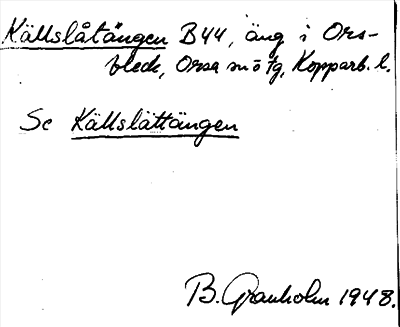 Källslåtängen B44, äng i Ors-
bleck, Orsa sn ö tg, Kopparb. l.
Se Källslättängen
B. Granholm 1948.